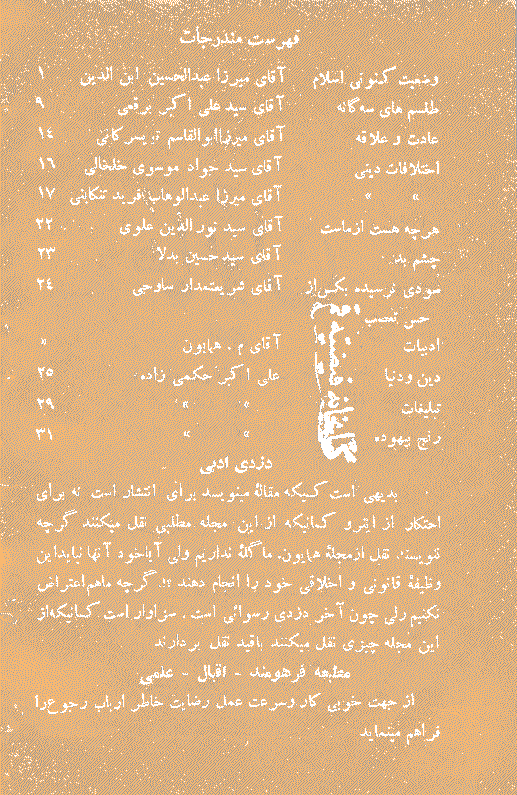 فهرست مندرجات
وضعیت کنونی اسلام آقای میرزا عبدالحسین ابن الدین ۱
طلسم های سه گانه آقای سید علی اکبر برقعی ۹
عادت و علاقه آقای میرزا ابوالقاسم تویسرکانی ۱۴
اختلافات دینی آقای سید جواد موسوی خلخالی ۱۶
» » آقای میرزا عبدالوهاب فرید تنکابنی ۱۷
هرچه هست ازماست آقای سید نور الدین علوی ۲۲
چشم بد آقای سید حسین بدلا ۲۳
سودی نرسیده بکس از آقای شریعتمدار ساوجی ۲۴
حس تعصب
ادبیات آقای م . همایون »
دین ودنیا علی اکبر حکمی زاده ۲۵
تبلیغات » » ۲۹
رنج بیهوده » » ۳۱
دزدی ادبی
بدیهی است کسیکه مقالهٔ مینویسد برای انتشار است نه برای
احتکار از اینرو کسانیکه از این مجله مطلبی نقل میکنند گرچه
ننویسند نقل ازمجلهٔ همایون. ماگله نداریم ولی آیاخود آنها نبایداین
وظیفهٔ قانونی و اخلاقی خود را انجام دهند ؟! گرچه ماهم اعتراض
نکنیم ولی چون آخر دزدی رسوائی است . سزاوار است کسانیکه از
این مجله چیزی نقل میکنند باقید نقل بردارند
مطبعه فرهومند - اقبال - علمی
از جهت خوبی کار وسرعت عمل رضایت خاطر ارباب رجوع را
فراهم مینماید